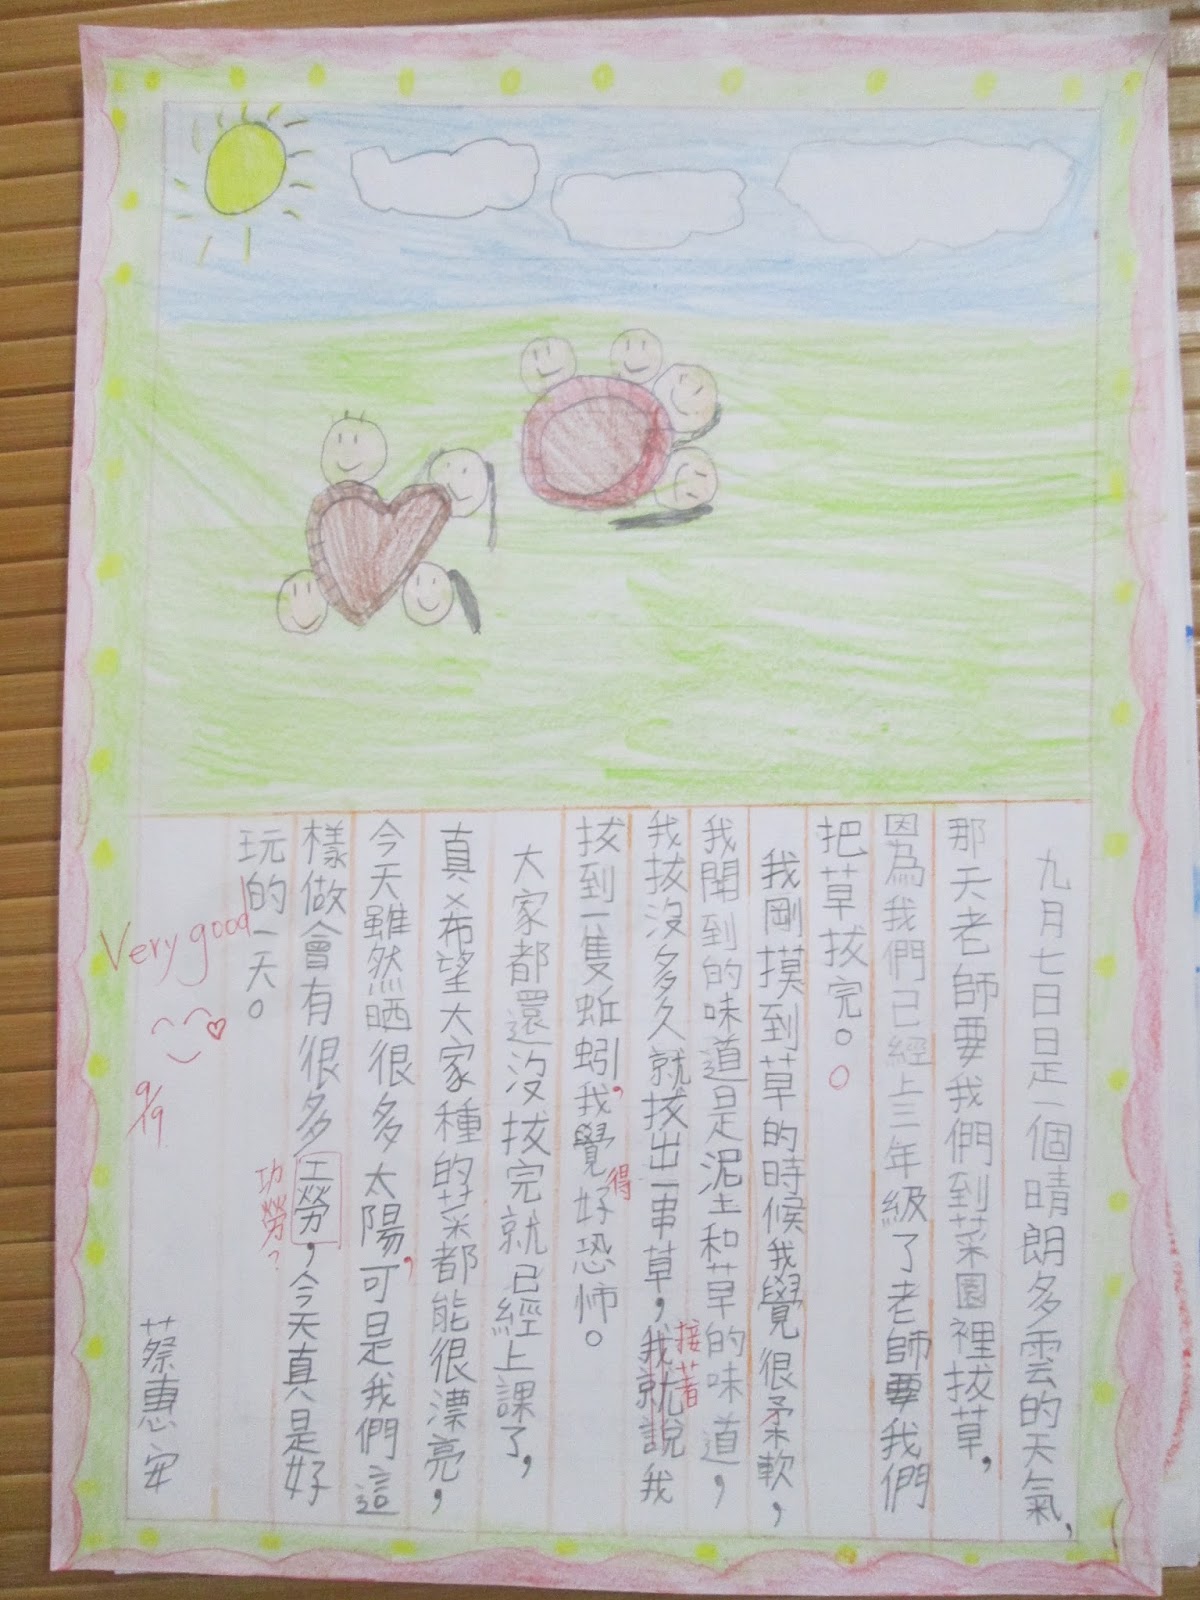 九月七日是一個晴朗多雲的天氣,
那天老師要我們到菜園裡拔草,
因為我們已經上三年級了老師要我們
把草拔完。。
我剛摸到草的時候我覺很柔軟,
我聞到的味道是泥土和草的味道,
接著
我拔沒多久就拔出一串草,我就說我
拔到一隻蚯蚓,我覺好恐怖。
得
大家都還沒拔完就已經上課了,
真希望大家種的菜都能很漂亮,
今天雖然晒很多太陽,可是我們這
樣做會有很多工勞,今天真是好
功勞?
玩的一天。
Very good
9/19
蔡惠安